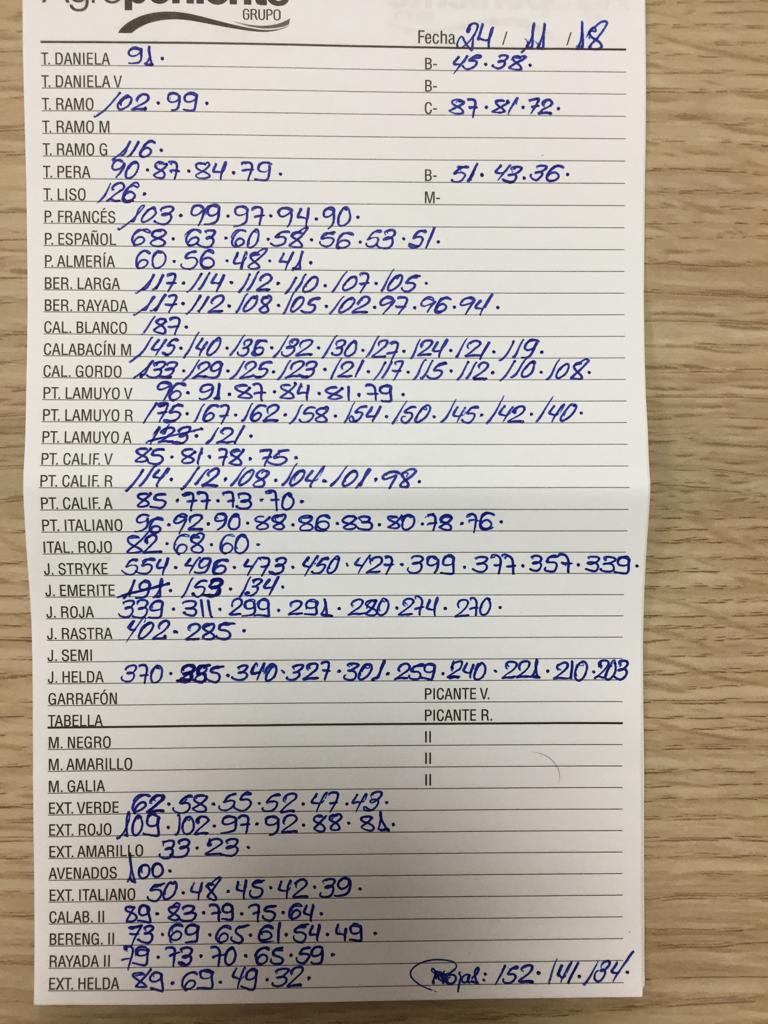 Agroponiente
GRUPO
Fecha 24 / 11 / 18
T. DANIELA 91. B- 45.38.
T. DANELA V B-
T. RAMO 102.99. C- 87.81.72.
T. RAMO M
T. RAMO G 116.
T. PERA 90.87.84.79. B- 51.43.36.
T. LISO 126. M-
P. FRANCÉS 103.99.97.94.90.
P. ESPAÑOL 68.63.60.58.56.53.51.
P. ALMERÍA 60.56.48.41.
BER. LARGA 117.114.112.110.107.105.
BER. RAYADA 117.112.108.105.102.97.96.94.
CAL. BLANCO 187.
CALABACÍN M 145.140.136.132.130.127.124.121.119.
CAL. GORDO 133.129.125.123.121.117.115.112.110.108.
PT. LAMUYO V 96.91.87.84.81.79.
PT. LAMUYO R 175.167.162.158.154.150.145.142.140.
PT. LAMUYO A 123.121.
PT. CALIF. V 85.81.78.75.
PT. CALIF. R 114.112.108.104.101.98.
PT. CALIF. A 85.77.73.70.
PT. ITALIANO 96.92.90.88.86.83.80.78.76.
ITAL. ROJO 82.68.60.
J. STRYKE 554.496.473.450.427.399.377.357.339.
J. EMERITE 191.153.134.
J. ROJA 339.311.299.291.280.274.270.
J. RASTRA 402.285.
J. SEMI
J. HELDA 370.355.340.327.301.259.240.221.210.203
GARRAFÓN PICANTE V.
TABELLA PICANTE R.
M. NEGRO II
M. AMARILLO II
M. GALIA II
EXT. VERDE 62.58.55.52.47.43.
EXT. ROJO 109.102.97.92.88.81.
EXT. AMARILLO 33.23.
AVENADOS 100.
EXT. ITALIANO 50.48.45.42.39.
CALAB. II 89.83.79.75.64.
BERENG. II 73.69.65.61.54.49.
RAYADA II 79.73.70.65.59.
EXT. HELDA 89.69.49.32. Rojas: 152.141.134.